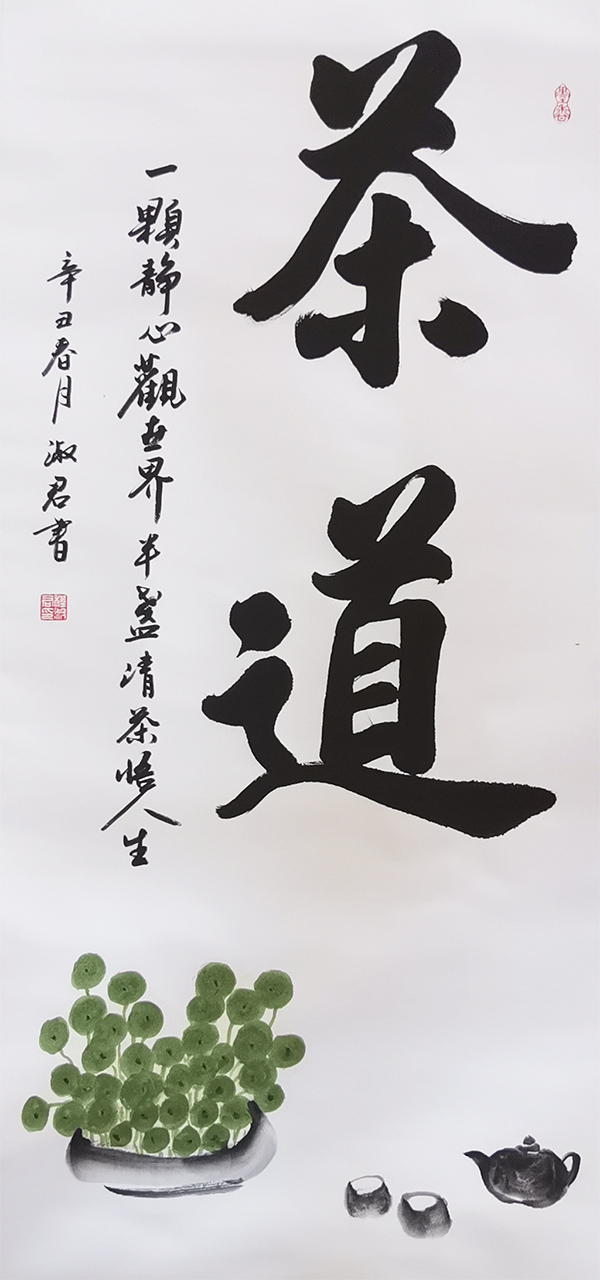 茶道
一顆静心觀世界半盏清茶悟人生
辛丑春月淑君書
墨香